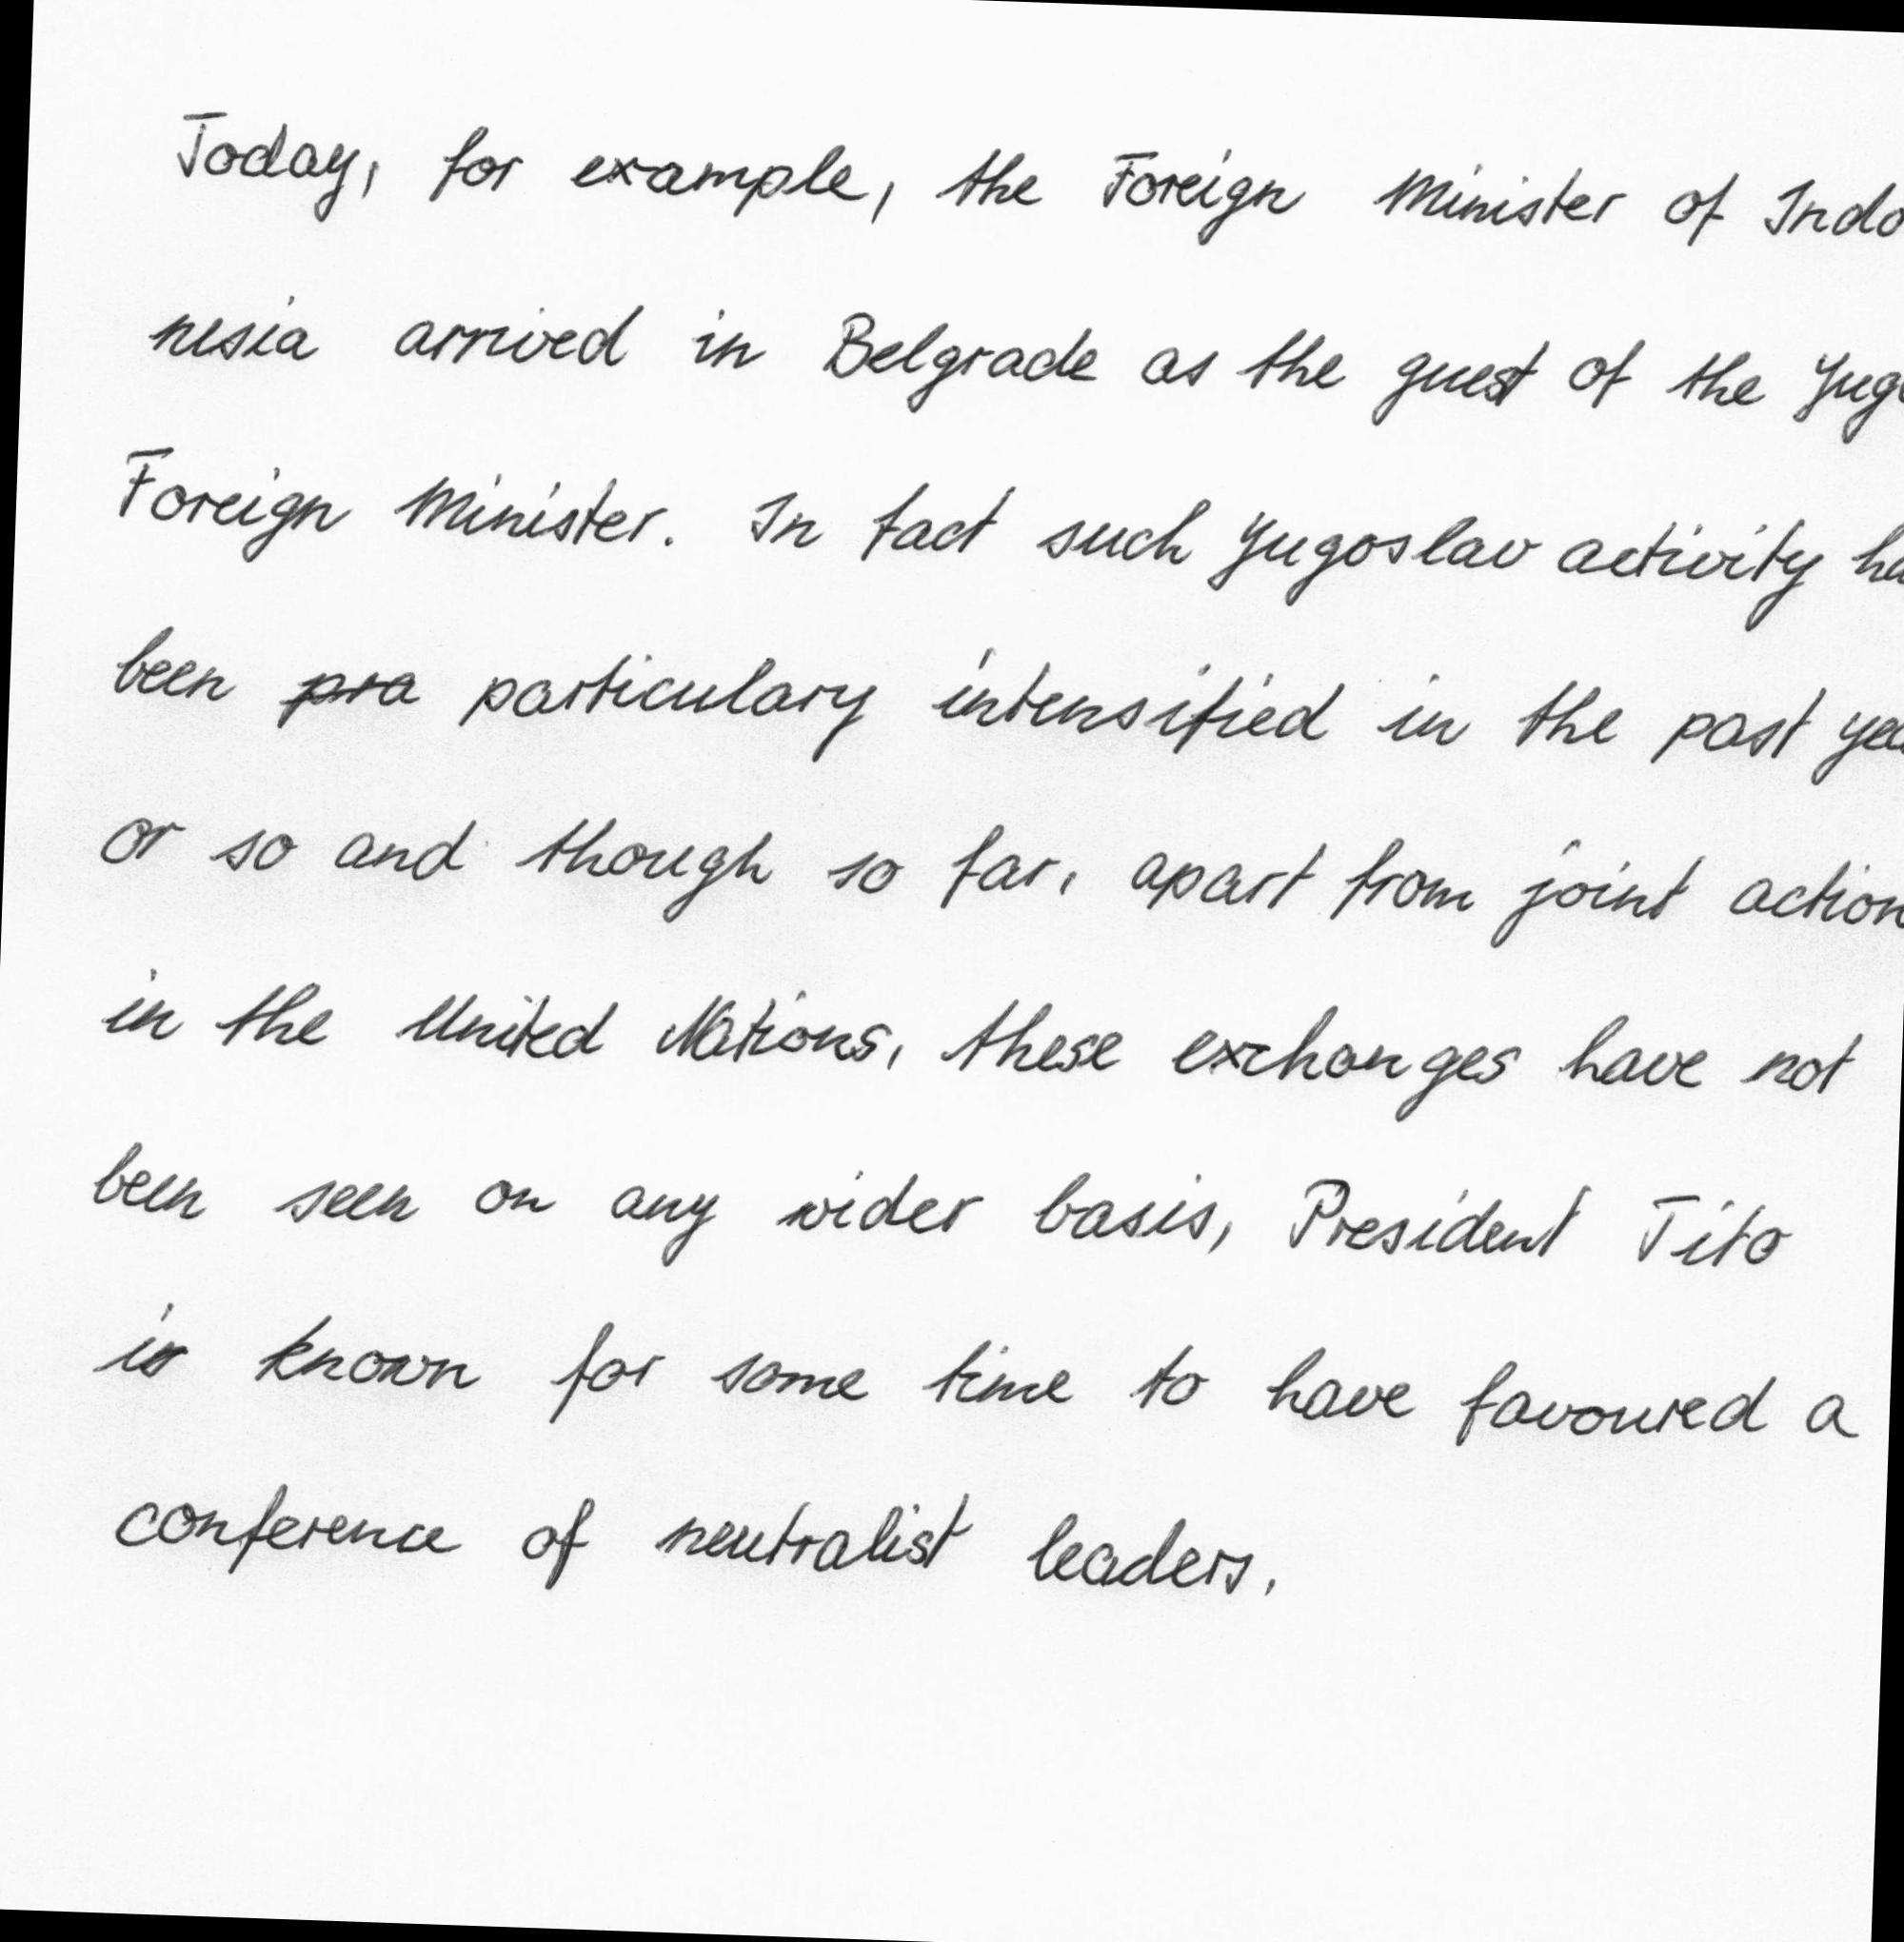 Today, for example, the Foreign Minister of Indo
nesia arrived in Belgrade as the guest of the
Foreign Minister. In fact such Yugoslav activity
been particulary intensified in the past
or so and though so far, apart from joint action
in the United Nations, these exchanges have not
been seen on any wider basis, President Tito
is known for some time to have favoured a
conference of neutralist leaders.